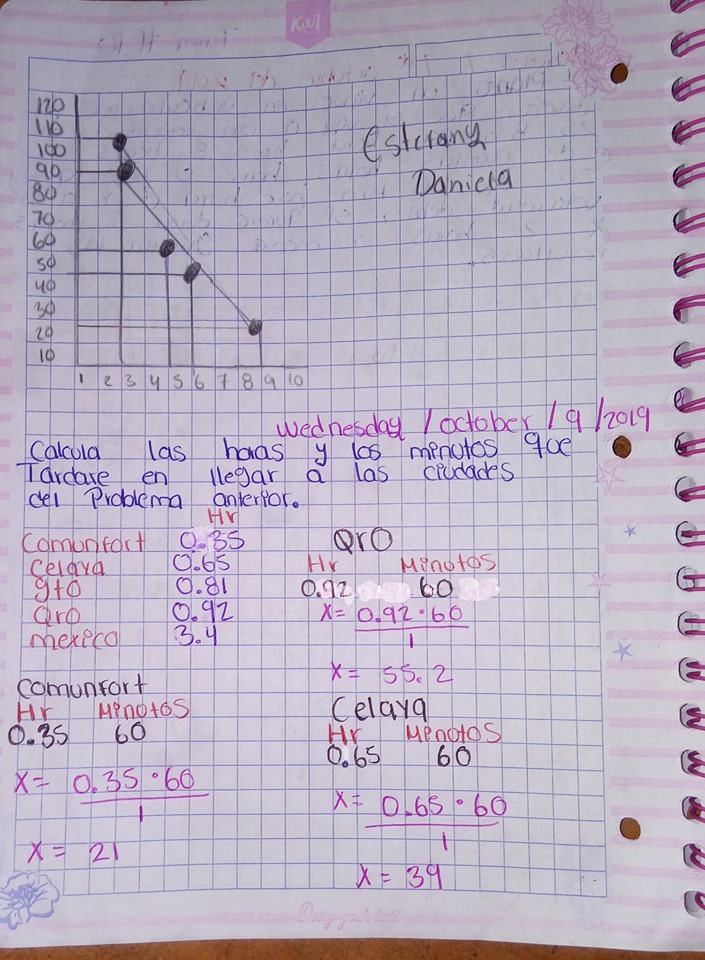 KIUT
120
110
100
90
80
70
60
50
40
30
20
10
1 2 3 4 5 6 7 8 9 10
Estefany
Daniela
Wednesday / october / 9 / 2019
Calcula las horas y los minutos que
Tardare en llegar a las ciudades
del Problema anterior.
Hr
Comunfort 0.35
Celaya 0.65
gto 0.81
Qro 0.92
mexico 3.4
Qro
Hr Minutos
0.92 60
X= 0.92·60
1
X= 55.2
Comunfort
Hr Minutos
0.35 60
X= 0.35·60
1
X= 21
Celaya
Hr Minutos
0.65 60
X= 0.65·60
1
X= 39